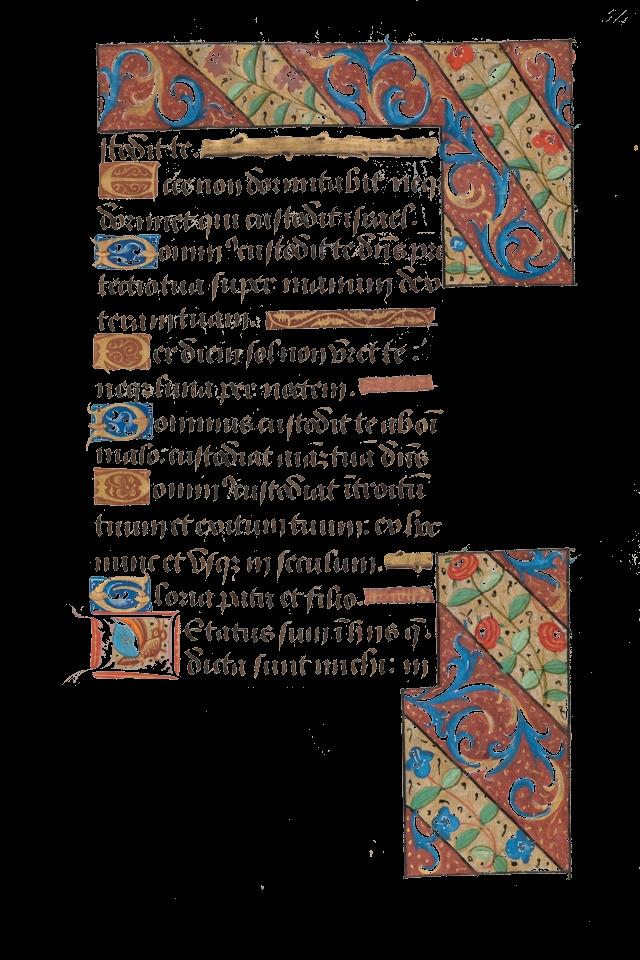 stodit te.
Ecce non dormitabit neqꝫ
dormiet: qui custodit israel.
Domin⁹ custodit te dn̄s pro
tectio tua super manum dex
teram tuam.
Per diem sol non vret te:
neqꝫ luna per noctem.
Dominus custodit te ab oī
malo: custodiat aīaꝫ tuā dn̄s
Domin⁹ custodiat ītroitū
tuum et exitum tuum: ex hoc
nunc et vsqꝫ in seculum.
Gloria patri et filio.
Letatus sum ī his q̄
dicta sunt michi: in